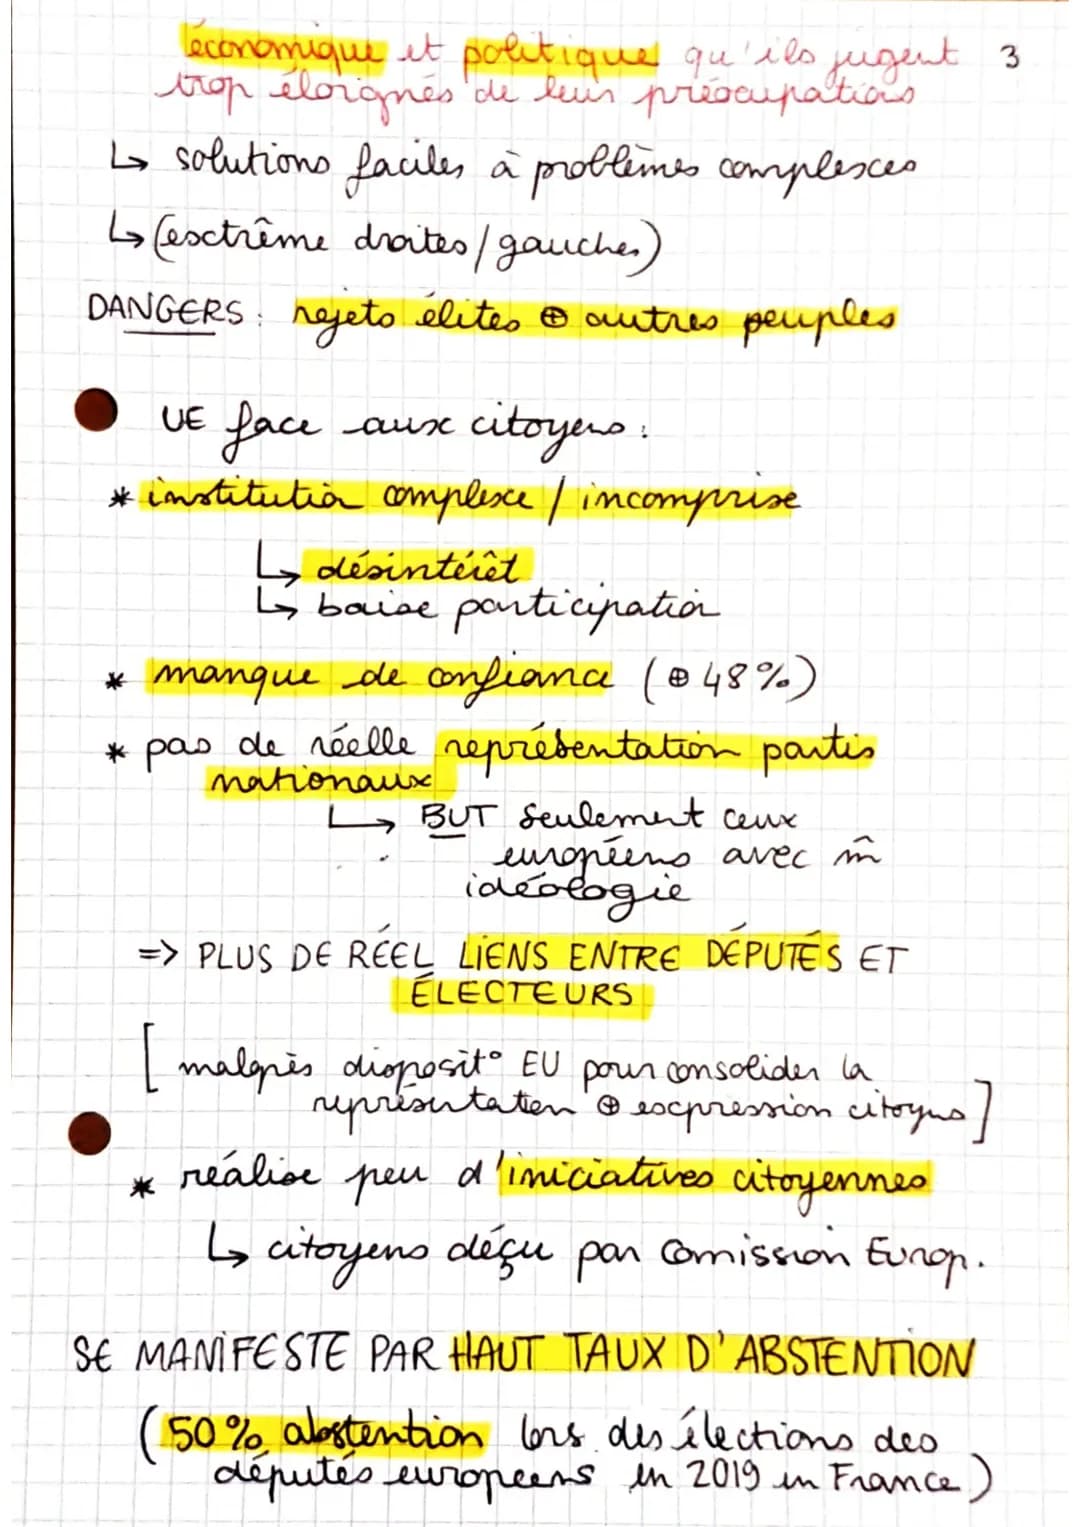 économique et politique qu'ils jugent 3
trop éloignés de leur préocupations
↳ solutions faciles à problèmes complexes
↳ (extrême droites / gauches)
DANGERS : rejets élites ⊕ autres peuples
UE face aux citoyens :
* institution complexe / incomprise
↳ désintérêt
↳ baise participation
* manque de confiance (⊕ 48%)
* pas de réelle représentation partis
nationaux
↳ BUT seulement ceux
européens avec m̂
idéologie
=> PLUS DE RÉEL LIENS ENTRE DÉPUTÉS ET
ÉLECTEURS
[ malgrès disposit° EU pour consolider la
représentaten ⊕ expression citoyens ]
* réalise peu d'iniciatives citoyennes
↳ citoyens déçu par Comission Europ.
SE MANIFESTE PAR HAUT TAUX D'ABSTENTION
(50% abstention lors des élections des
députés européens en 2019 en France)